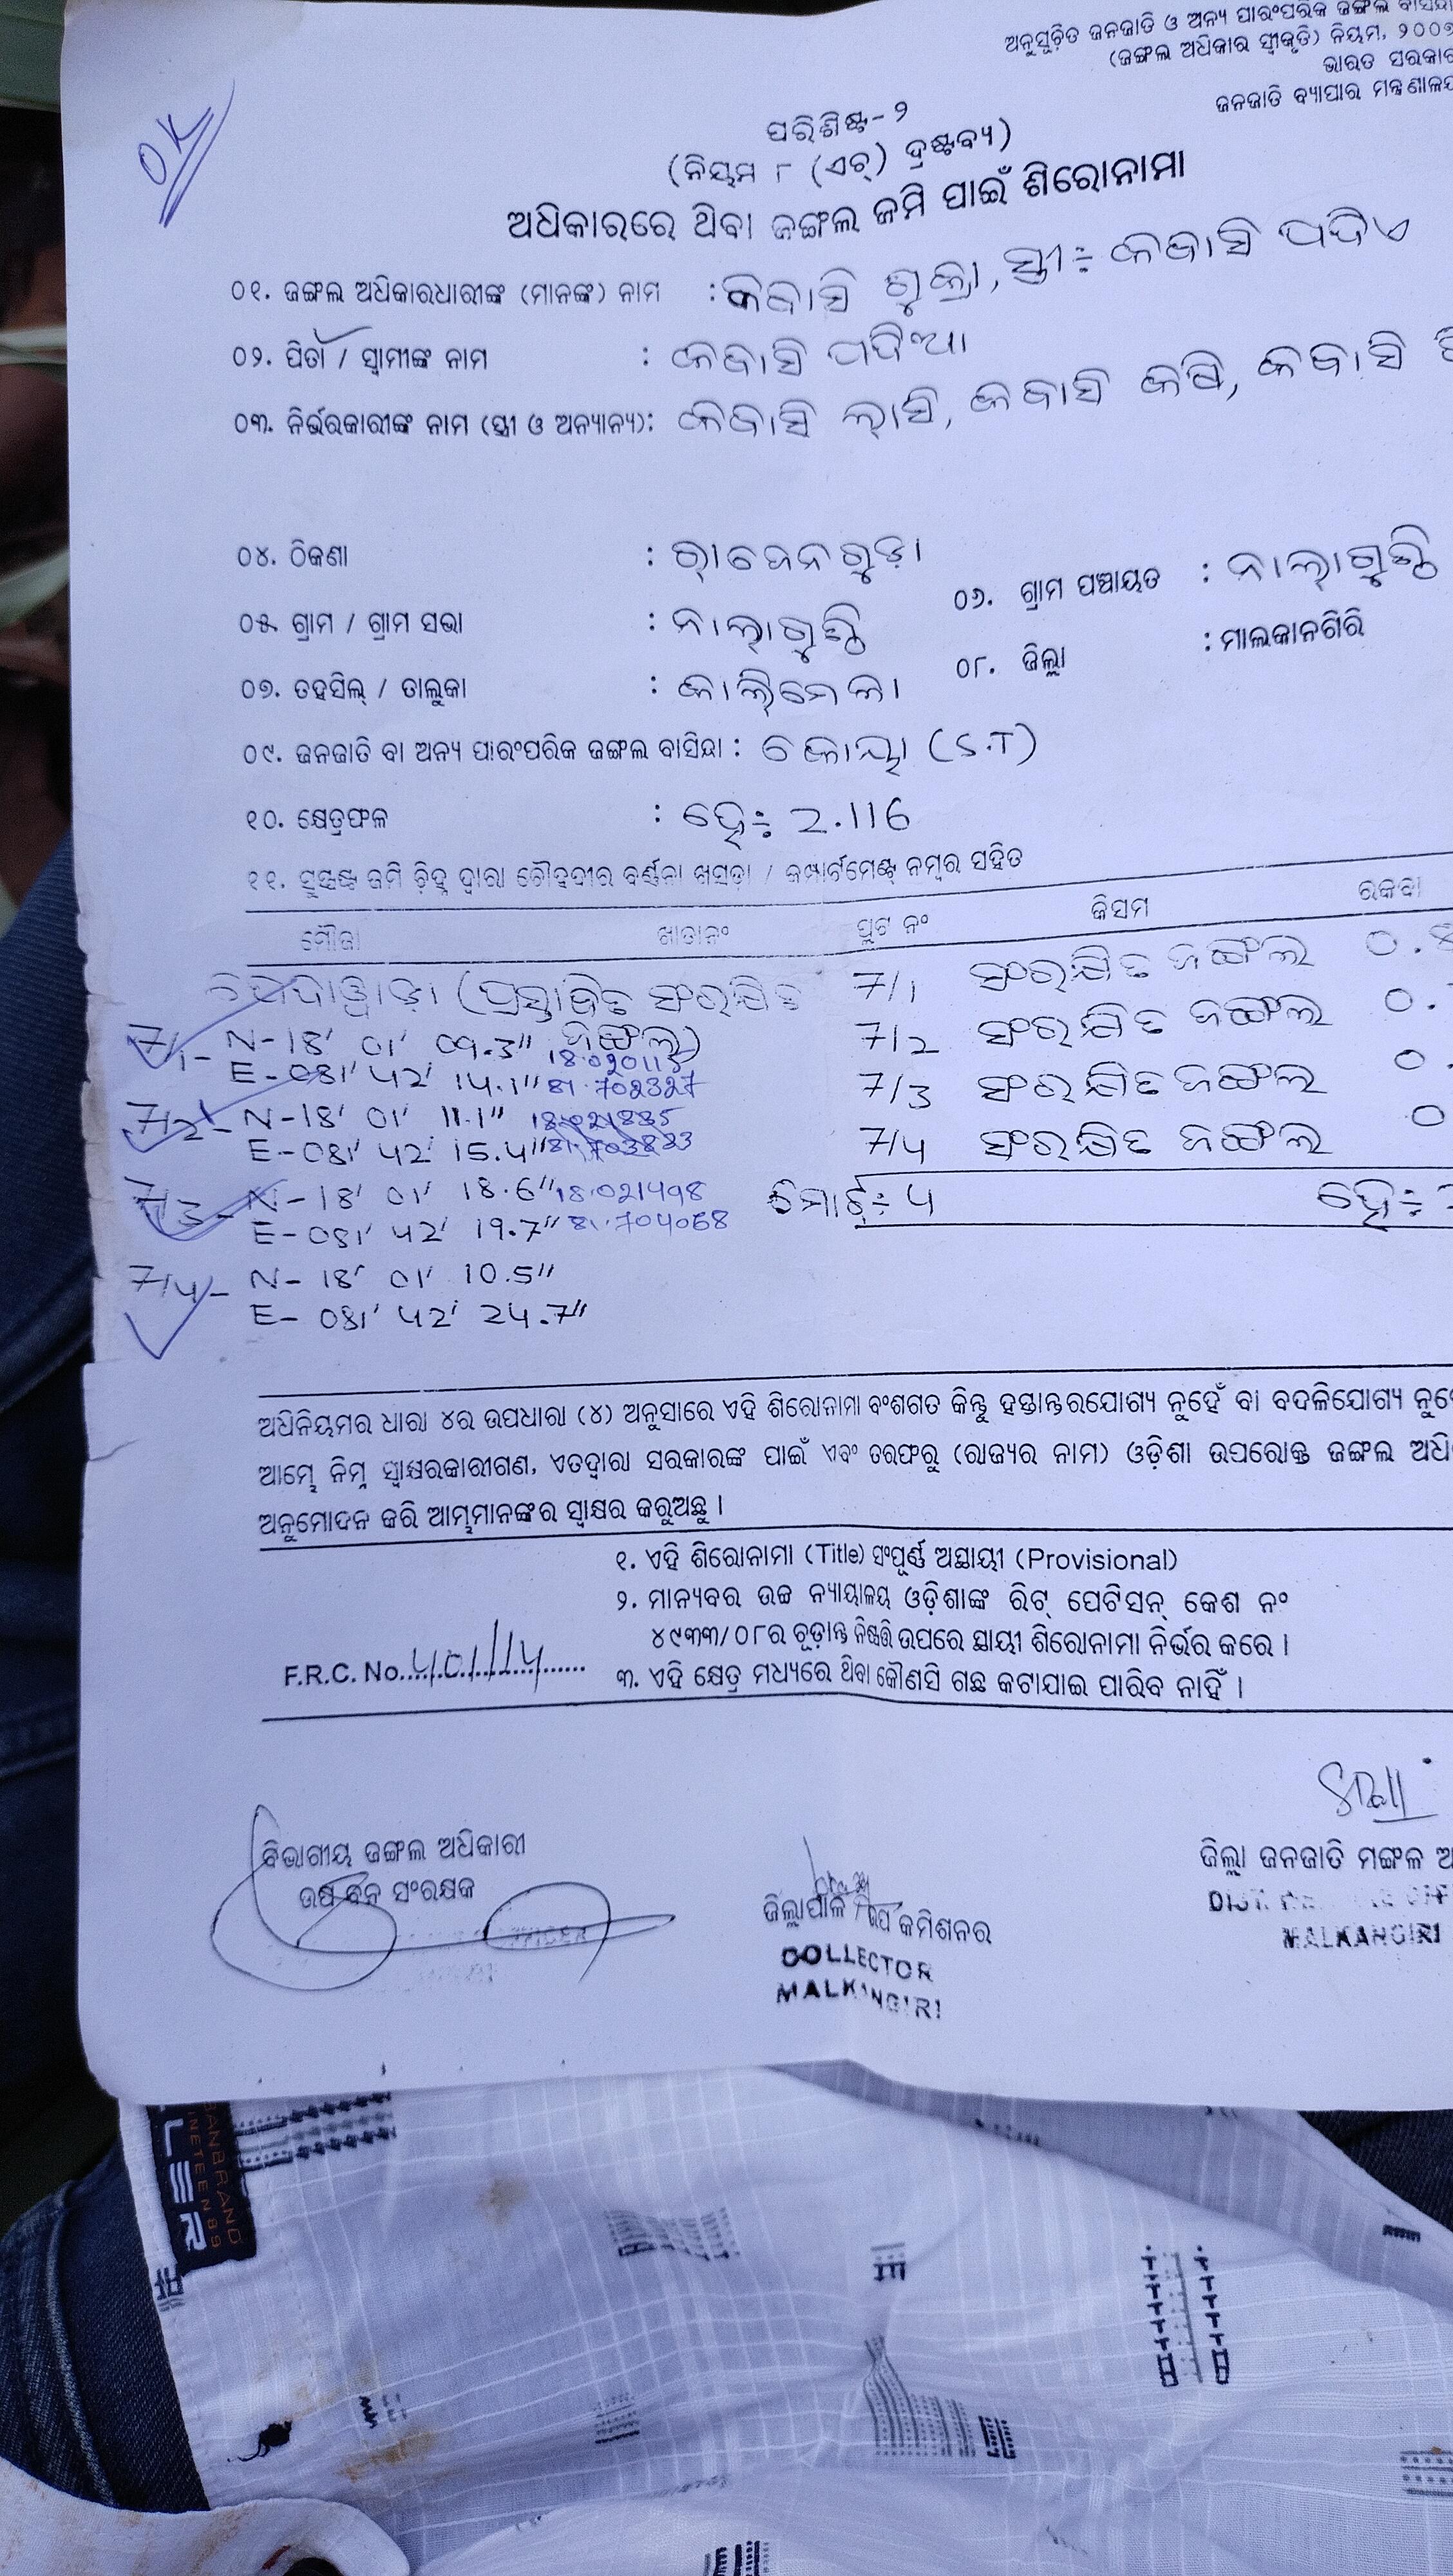 ଅନୁସୂଚିତ ଜନଜାତି ଓ ଅନ୍ୟ ପାରଂପରିକ ଜଙ୍ଗଲ ବାସିନ୍ଦା
(ଜଙ୍ଗଲ ଅଧିକାର ସ୍ୱୀକୃତି) ନିୟମ, ୨୦୦୭
ଭାରତ ସରକାର
ଜନଜାତି ବ୍ୟାପାର ମନ୍ତ୍ରଣାଳୟ
OK
ପରିଶିଷ୍ଟ-୨
(ନିୟମ ୮ (ଏଚ୍) ଦ୍ରଷ୍ଟବ୍ୟ)
ଅଧିକାରରେ ଥିବା ଜଙ୍ଗଲ ଜମି ପାଇଁ ଶିରୋନାମା
୦୧. ଜଙ୍ଗଲ ଅଧିକାରଧାରୀଙ୍କ (ମାନଙ୍କ) ନାମ : କବାସି ଶୁକ୍ରା, ସ୍ତ୍ରୀ÷ କବାସି
୦୨. ପିତା / ସ୍ୱାମୀଙ୍କ ନାମ : କବାସି ପଦିଆ
୦୩. ନିର୍ଭରକାରୀଙ୍କ ନାମ (ସ୍ତ୍ରୀ ଓ ଅନ୍ୟାନ୍ୟ): କବାସି ଲାସି, କବାସି କଷି, କବାସି
୦୪. ଠିକଣା : ରାଜେନଗୁଡ଼ା
୦୫. ଗ୍ରାମ / ଗ୍ରାମ ସଭା : ନାଲାଗୁଣ୍ଠି ୦୬. ଗ୍ରାମ ପଞ୍ଚାୟତ : ନାଲାଗୁଣ୍ଠି
୦୭. ତହସିଲ୍ / ତାଲୁକା : କାଲିମେଳା ୦୮. ଜିଲ୍ଲା : ମାଲକାନଗିରି
୦୯. ଜନଜାତି ବା ଅନ୍ୟ ପାରଂପରିକ ଜଙ୍ଗଲ ବାସିନ୍ଦା : କୋୟା (S.T)
୧୦. କ୍ଷେତ୍ରଫଳ : ହେ÷ 2.116
୧୧. ସୁସ୍ପଷ୍ଟ ଜମି ଚିହ୍ନ ଦ୍ୱାରା ଚୌହଦୀର ବର୍ଣ୍ଣନା ଖସଡ଼ା / କମ୍ପାର୍ଟମେଣ୍ଟ୍ ନମ୍ବର ସହିତ
ମୌଜା ଖାତାନଂ ପ୍ଲଟ ନଂ କିସମ ରକବା
(ପ୍ରସ୍ତାବିତ ସଂରକ୍ଷିତ 7/1 ସଂରକ୍ଷିତ ଜଙ୍ଗଲ 0.
ଜଙ୍ଗଲ)
7/1- N-18' 01' 09.3" 7/2 ସଂରକ୍ଷିତ ଜଙ୍ଗଲ 0.
E-081' 42' 14.1" 81.702327 7/3 ସଂରକ୍ଷିତ ଜଙ୍ଗଲ 0.
7/2- N-18' 01' 11.1"
E-081' 42' 15.4" 7/4 ସଂରକ୍ଷିତ ଜଙ୍ଗଲ 0
7/3- N-18' 01' 18.6" 18.021498 ମୋଟ÷ 4 ହେ÷
E-081' 42' 19.7" 81.704068
7/4- N-18' 01' 10.5"
E-081' 42' 24.7"
ଅଧିନିୟମର ଧାରା ୪ର ଉପଧାରା (୪) ଅନୁସାରେ ଏହି ଶିରୋନାମା ବଂଶଗତ କିନ୍ତୁ ହସ୍ତାନ୍ତରଯୋଗ୍ୟ ନୁହେଁ ବା ବଦଳିଯୋଗ୍ୟ
ଆମ୍ଭେ ନିମ୍ନ ସ୍ୱାକ୍ଷରକାରୀଗଣ, ଏତଦ୍ୱାରା ସରକାରଙ୍କ ପାଇଁ ଏବଂ ତରଫରୁ (ରାଜ୍ୟର ନାମ) ଓଡ଼ିଶା ଉପରୋକ୍ତ ଜଙ୍ଗଲ
ଅନୁମୋଦନ କରି ଆମ୍ଭମାନଙ୍କର ସ୍ୱାକ୍ଷର କରୁଅଛୁ ।
୧. ଏହି ଶିରୋନାମା (Title) ସଂପୂର୍ଣ୍ଣ ଅସ୍ଥାୟୀ (Provisional)
୨. ମାନ୍ୟବର ଉଚ୍ଚ ନ୍ୟାୟାଳୟ ଓଡ଼ିଶାଙ୍କ ରିଟ୍ ପେଟିସନ୍ କେଶ ନଂ
୪୯୩୩/୦୮ର ଚୂଡ଼ାନ୍ତ ନିଷ୍ପତ୍ତି ଉପରେ ସ୍ଥାୟୀ ଶିରୋନାମା ନିର୍ଭର କରେ ।
F.R.C. No. 401/14
୩. ଏହି କ୍ଷେତ୍ର ମଧ୍ୟରେ ଥିବା କୌଣସି ଗଛ କଟାଯାଇ ପାରିବ ନାହିଁ ।
ବିଭାଗୀୟ ଜଙ୍ଗଲ ଅଧିକାରୀ
ଉପ ବନ ସଂରକ୍ଷକ
ଜିଲ୍ଲାପାଳ ଉପ କମିଶନର
COLLECTOR
MALKANGIRI
ଜିଲ୍ଲା ଜନଜାତି ମଙ୍ଗଳ
DIST.
MALKANGIRI